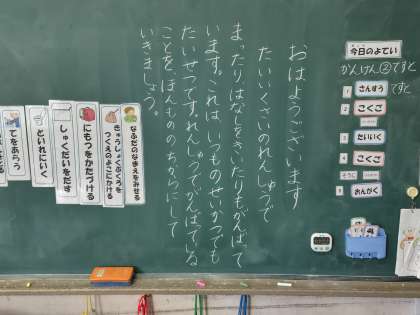 おはようございます
たいいくさいのれんしゅうで
まったり、はなしをきいたりもがんばって
います。これは、いつものせいかつでも
たいせつです。れんしゅうでがんばっている
ことを、ほんもののちからにして
いきましょう。
今日のよてい
かんけん②てすと
1 さんすう てすと
2 こくご
3 たいいく
4 こくご
そうじ
5 おんがく
なふだのなまえをみせる
きゅうしょくぶくろを
つくえのよこにかける
にもつをかたづける
しゅくだいをだす
といれにいく
てをあらう